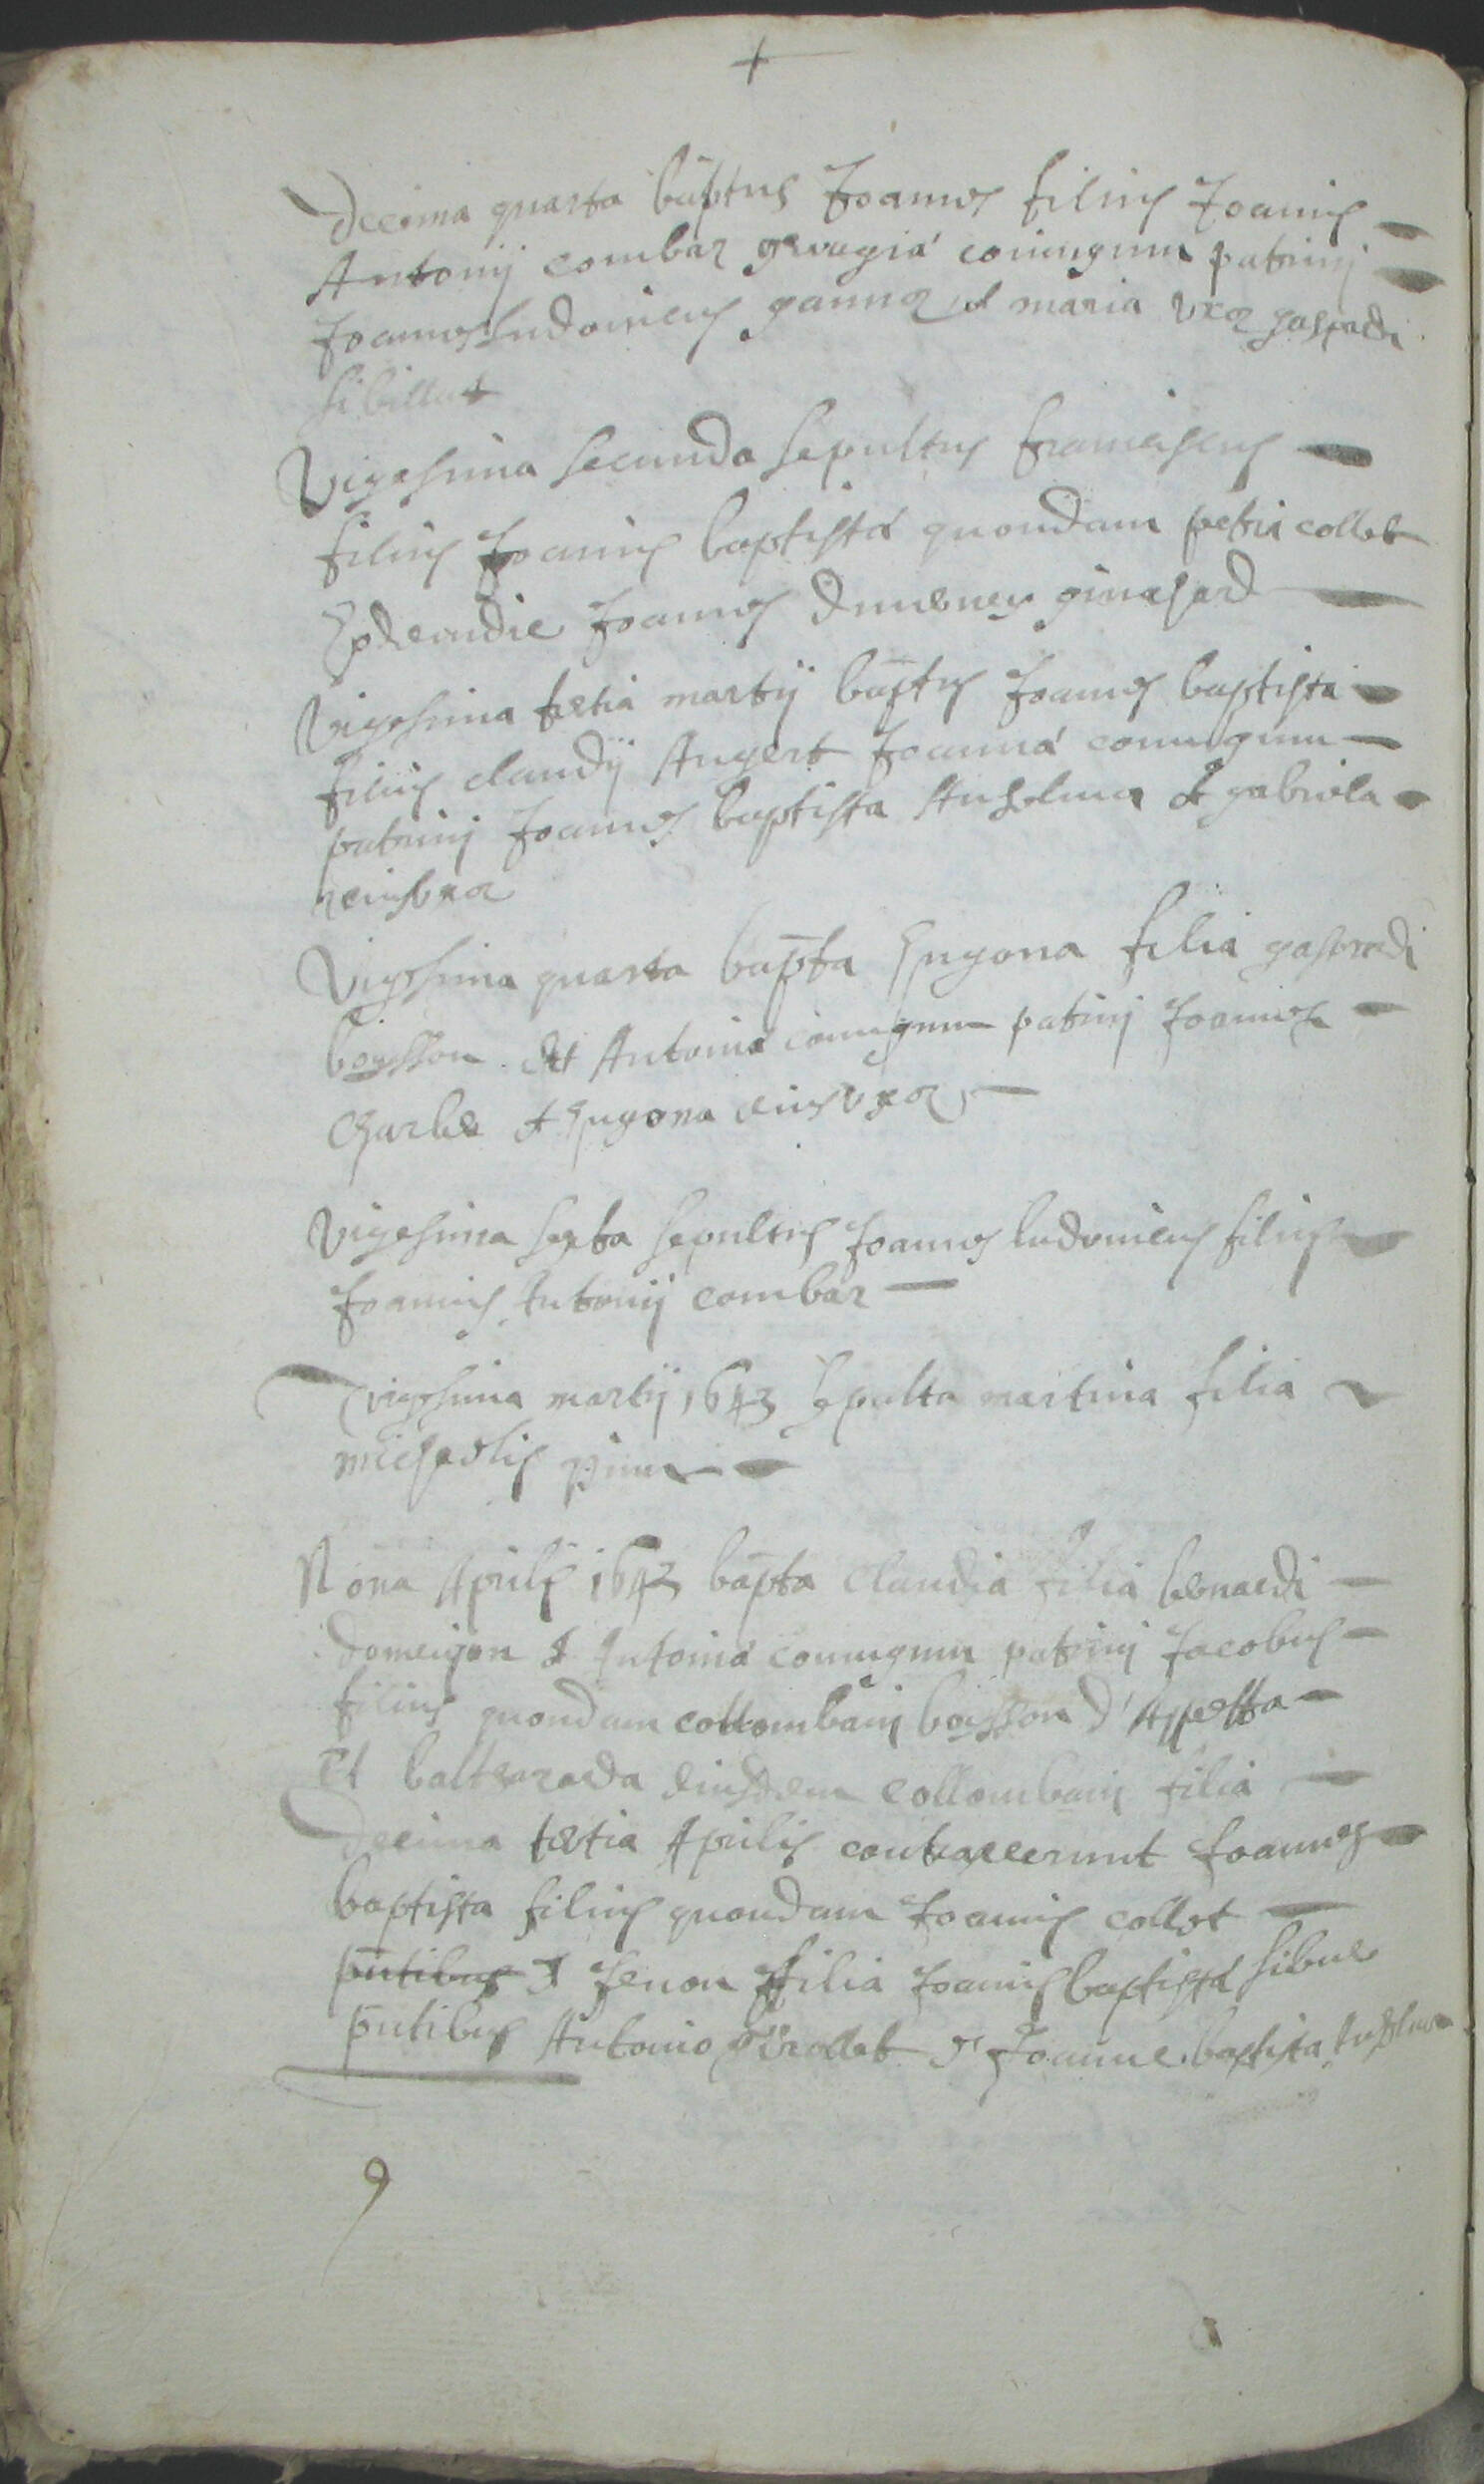 +
Decima quarta baptus Joannes filius Joannis
Antonij combaz gevagiæ coniugum patrinj
Joannes Ludovicus et maria uxor gaspardi
sibillat
Vigesima secunda sepultus franciscus
filius Joannis baptistæ quondam petri collet
Eodemdie Joannes
Vigesima tertia martij baptus Joannes baptista
filius claudij Augert Joannæ coniugum
patrinj Joannes baptista Anselme & gabriela
eius uxor
Vigesima quarta bapta hugona filia gaspardi
boysson et Antoniæ coniugum patrinj Joannes
Charles & hugona eius uxor
Vigesima sexta sepultus Joannes ludovicus filius
Joannis Antonij combaz
Trigesima martij 1643 sepulta martina filia
michaelis
Nona Aprilis 1643 bapta Claudia filia bernardi
domeigon & Antoniæ coniugum patrinj Jacobus
filius quondam collombanj boysson d'
Et baltazarda eiusdem collombanj filia
Decima tertia Aprilis contraxerunt Joannes
baptista filius quondam Joannis collet
pntibus & Jenon filia Joannis baptistæ sibue
pntibus Antonio & Joanne baptista Anselme
9